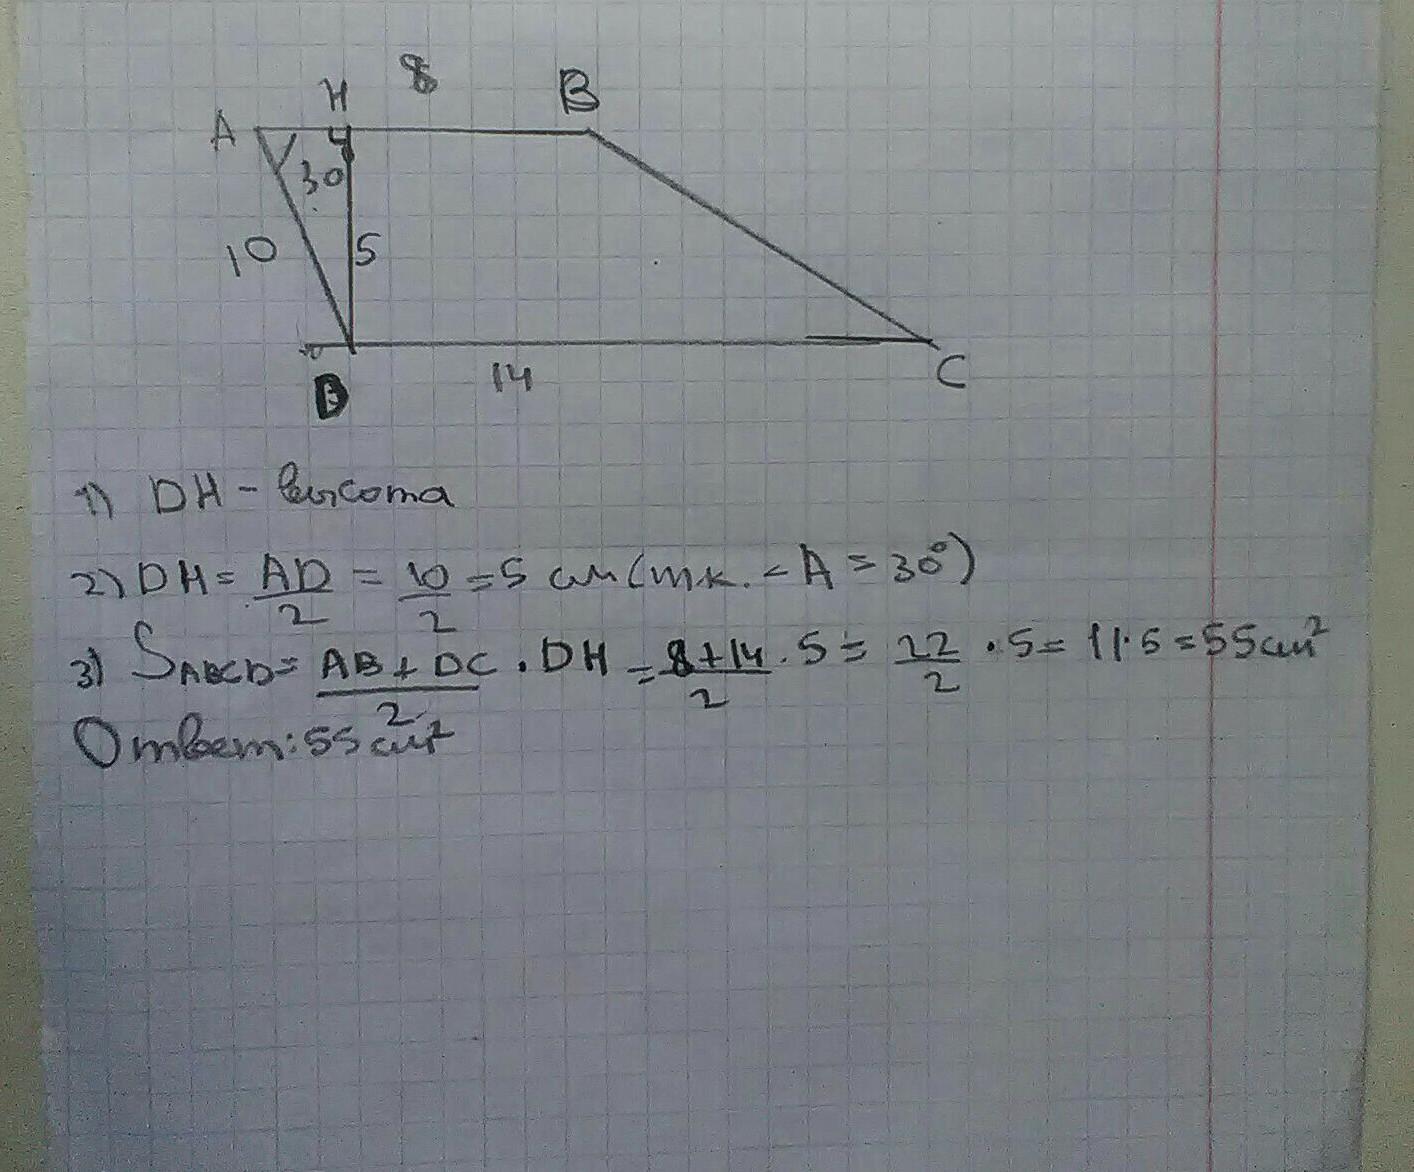 8
H
B
A
30
10
5
D
14
C
1) DH - высота
2) DH = AD/2 = 10/2 = 5 см (т.к. ∠A = 30°)
3) SABCD = AB + DC/2 · DH = 8+14/2 · 5 = 22/2 · 5 = 11·5 = 55 см²
Ответ: 55 см²